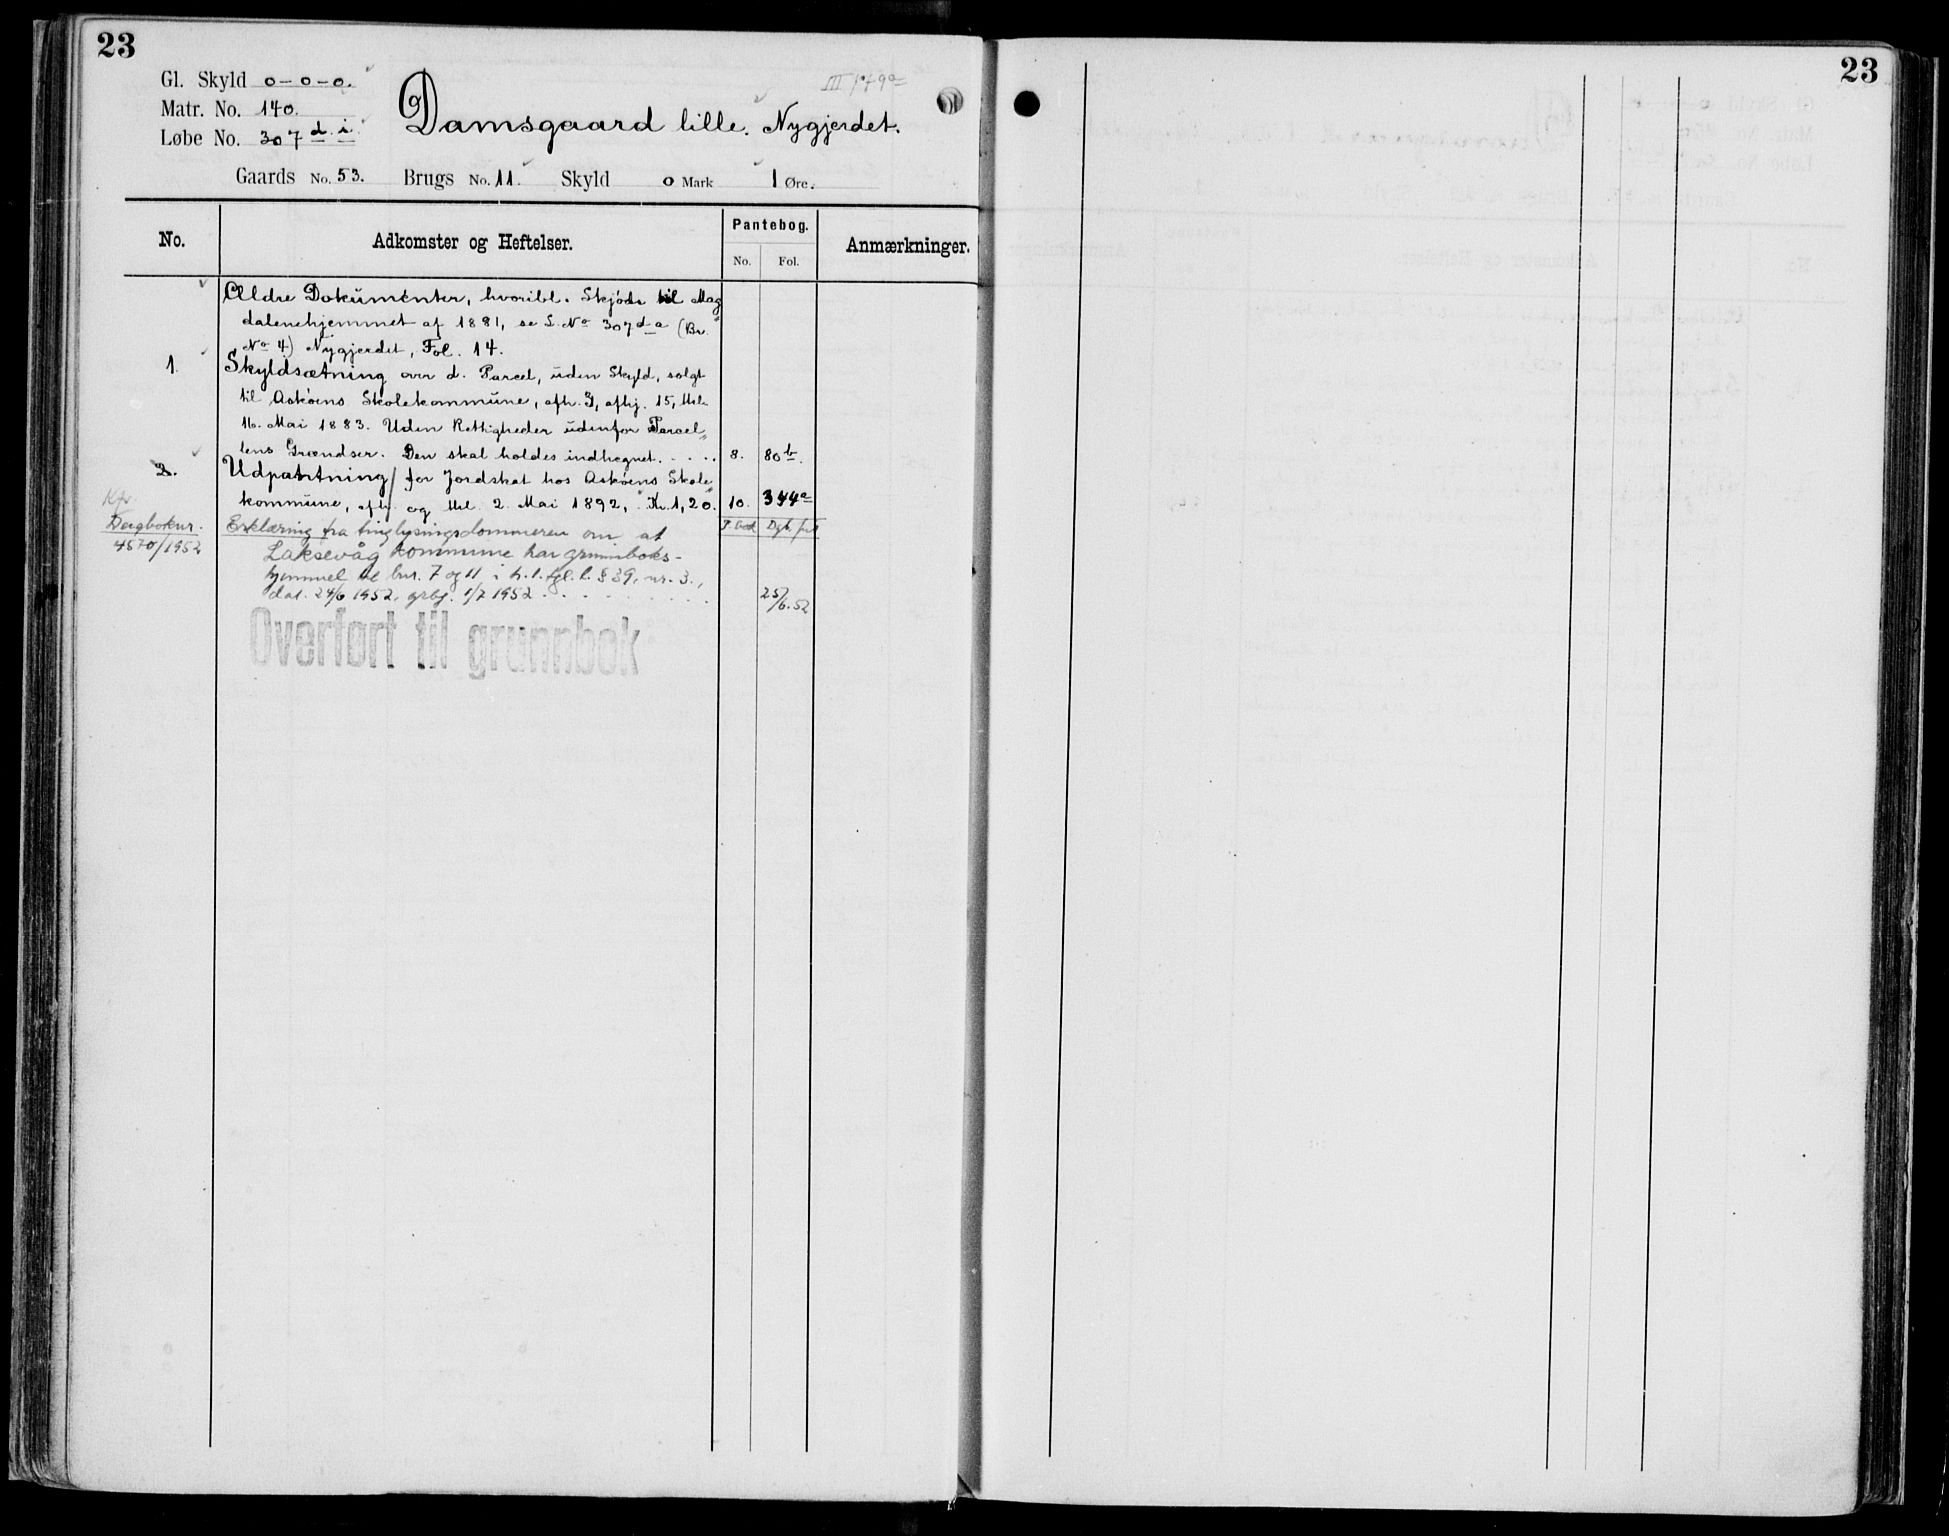 23
Gl. Skyld 0-0-0.
III 179a
Matr. No. 140.
Damsgaard lille. Nygjerdet.
Løbe No. 307 d i
Gaards No. 53. Brugs No. 11. Skyld 0 Mark 1 Øre.
No. Adkomster og Heftelser. Pantebog. Anmærkninger.
No. Fol.
Ældre Dokumenter, hvoribl. Skjøde til Mag„
dalenehjemmet af 1881, se L. No 307 d-a (Br.
No 4) Nygjerdet, Fol. 14.
1. Skyldsætning over d. Parcel, uden Skyld, solgt
til Askøens Skolekommune, afh. 3, afhj. 15, thl.
16. Mai 1883. Uden Rettigheder udenfor Parcel„
lens Grændser. Den skal holdes indhegnet. . . . . 8. 80b.
2. Udpantning for Jordskat hos Askøens Skole„
kommune, afh. og thl. 2. Mai 1892, Kr. 1,20. 10. 344a
Kfr.
Dagboknr.
4570/1952
Erklæring fra tinglysingsdommeren om at P. bok Dgb. ført
Laksevåg kommune har grunnboks-
hjemmel til bnr. 7 og 11 i h. t. tgl. l. § 39, nr. 3.,
dat. 24/6 1952, grbf. 1/7 1952 . . . . . . . . 25/6.52
Overført til grunnbok
23